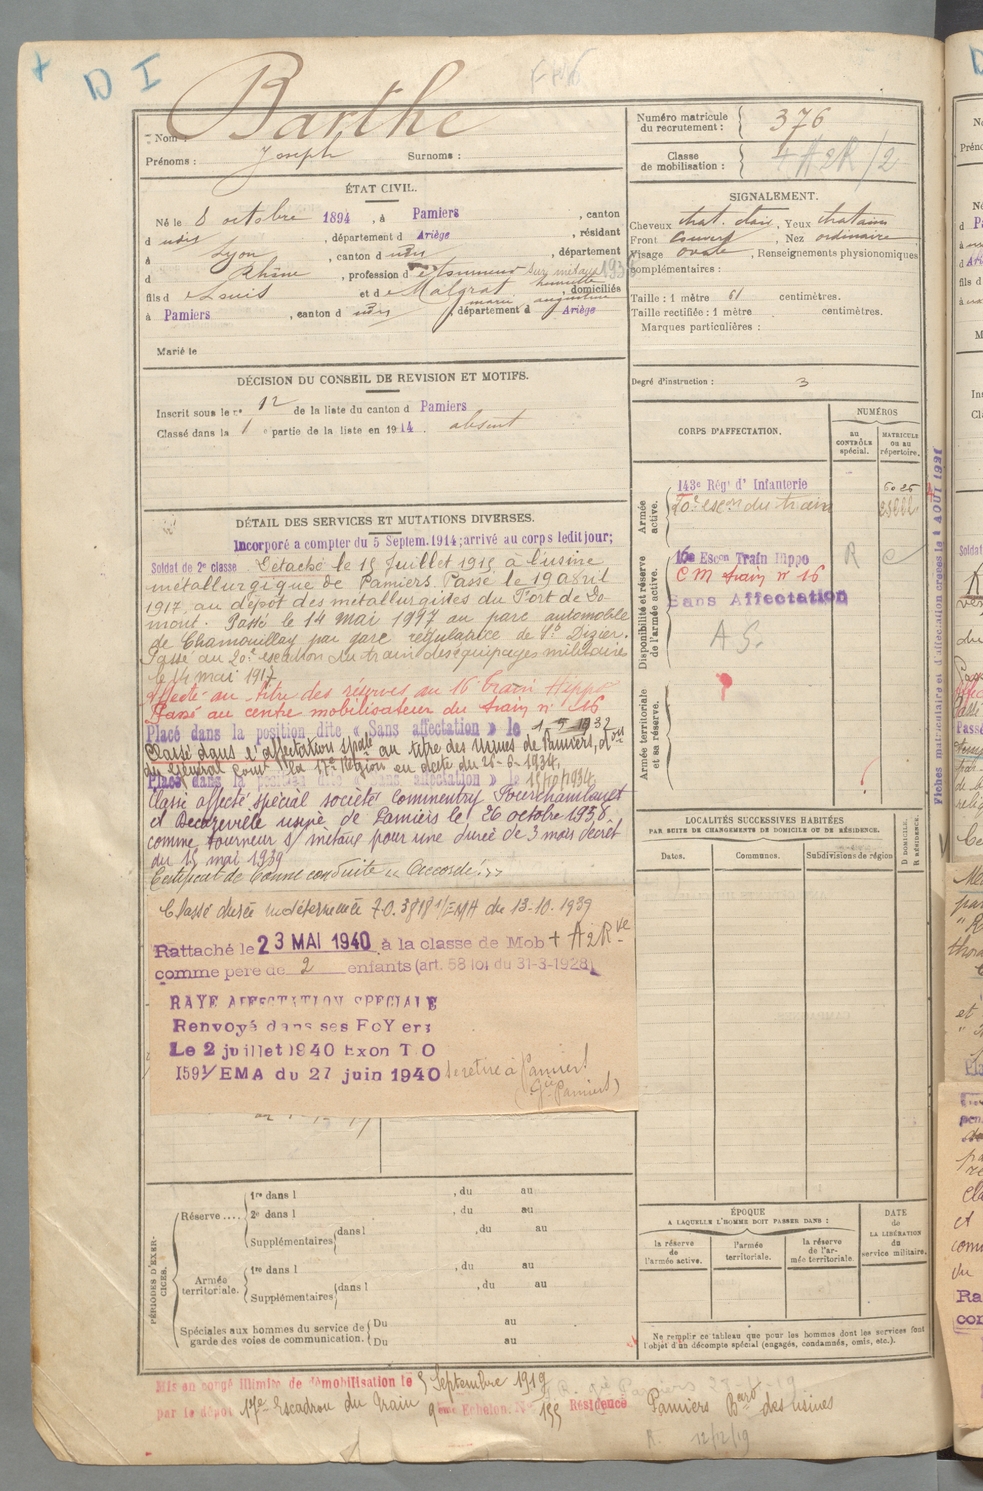 + D I
Barthe
Nom :
Prénoms : Joseph Surnoms :
Numéro matricule du recrutement : 376
Classe de mobilisation : + A 2 R / 2
ÉTAT CIVIL.
Né le 8 octobre 1894, à Pamiers, canton
d udis, département d Ariège, résidant
à Lyon, canton d udis, département
d Rhône, profession de tourneur sur métaux 193
fils de Louis et de Malgrat henriette, domiciliés
marie augustine
à Pamiers, canton d udis, département d Ariège
Marié le
SIGNALEMENT.
Cheveux chat. clair, Yeux chatains
Front couvert, Nez ordinaire
Visage ovale, Renseignements physionomiques
complémentaires :
Taille : 1 mètre 61 centimètres.
Taille rectifiée : 1 mètre centimètres.
Marques particulières :
Degré d'instruction : 3
DÉCISION DU CONSEIL DE REVISION ET MOTIFS.
Inscrit sous le n° 12 de la liste du canton d Pamiers
Classé dans la 1 e partie de la liste en 1914. absent
CORPS D'AFFECTATION.
NUMÉROS
au CONTRÔLE spécial.
MATRICULE OU AU répertoire.
Armée active.
143e Régt d' Infanterie
20e escon du train
Disponibilité et réserve de l'armée active.
16e Escon Train Hippo R C
CM train n° 16
Sans Affectation
A S.
Armée territoriale et sa réserve.
DÉTAIL DES SERVICES ET MUTATIONS DIVERSES.
Incorporé a compter du 5 Septem. 1914; arrivé au corps ledit jour;
Soldat de 2e classe Détaché le 15 Juillet 1915 à l'usine
métallurgique de Pamiers. Passé le 19 avril
1917, au dépôt des métallurgistes du Fort de Do-
mont. Passé le 14 mai 1917 au parc automobile
de Chamouilley par gare régulatrice de St Dizier.
Passé au 20e escadron du train des équipages militaires
le 14 mai 1917
Affecté au titre des réserves au 16e Train Hippo
Passé au centre mobilisateur du train n° 16
Placé dans la position dite « Sans affectation » le 1-5-1932
Classé dans l'affectation spale au titre des Usines de Pamiers, Don
du Général Comt la 17e Région en date du 28-6-1934.
Placé dans la position dite « Sans affectation » le 15/10/1934
Classé affecté spécial société Commentry Fourchambault
et Decazeville usine de Pamiers le 26 octobre 1938
comme tourneur s/ métaux pour une durée de 3 mois décret
du 15 mai 1939
Certificat de bonne conduite « Accordé. »
Classé durée indéterminée 7.0.3818 1/EMA du 13-10-1939
Rattaché le 23 MAI 1940 à la classe de Mob + A 2 R ve
comme père de 2 enfants (art. 58 loi du 31-3-1928)
RAYE AFFECTATION SPECIALE
Renvoyé dans ses FoYers
Le 2 juillet 1940 Exon T O
1591/EMA du 27 juin 1940 se retire à Pamiers
(Gie Pamiers)
LOCALITÉS SUCCESSIVES HABITÉES
PAR SUITE DE CHANGEMENTS DE DOMICILE OU DE RÉSIDENCE.
Dates. Communes. Subdivisions de région
D DOMICILE. R RÉSIDENCE.
PÉRIODES D'EXERCICES.
Réserve .... 1re dans l , du au
2e dans l , du au
Supplémentaires dans l , du au
Armée territoriale. 1re dans l , du au
Supplémentaires dans l , du au
Spéciales aux hommes du service de garde des voies de communication. Du au
Du au
ÉPOQUE
A LAQUELLE L'HOMME DOIT PASSER DANS :
la réserve de l'armée active.
l'armée territoriale.
la réserve de l'armée territoriale.
DATE de LA LIBÉRATION du service militaire.
Ne remplir ce tableau que pour les hommes dont les services font
l'objet d'un décompte spécial (engagés, condamnés, omis, etc.).
Mis en congé illimité de démobilisation le 5 Septembre 1919
par le dépôt 17e Escadron du Train 9eme Echelon. N° 155 Résidence Pamiers Bard des Usines
R. 12/12/19
Fiches matriculaire et d'affectation créées le 4 AOUT 1921